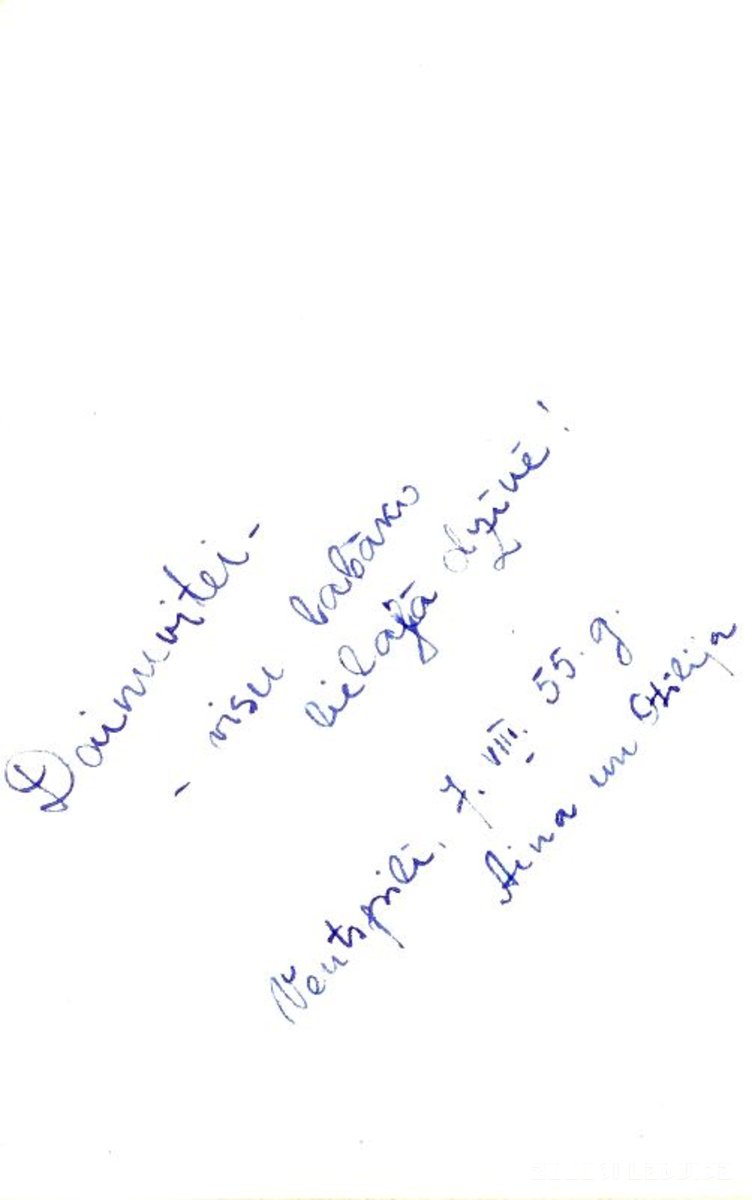 Dainuvītei -
- visu labāko
lielajā dzīvē!
Ventspilī, 7. VIII. 55. g.
Aina un Otilija